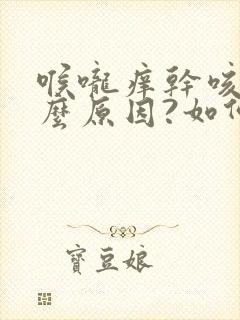 喉嚨痒幹咳
麼原因?如何
寶豆娘